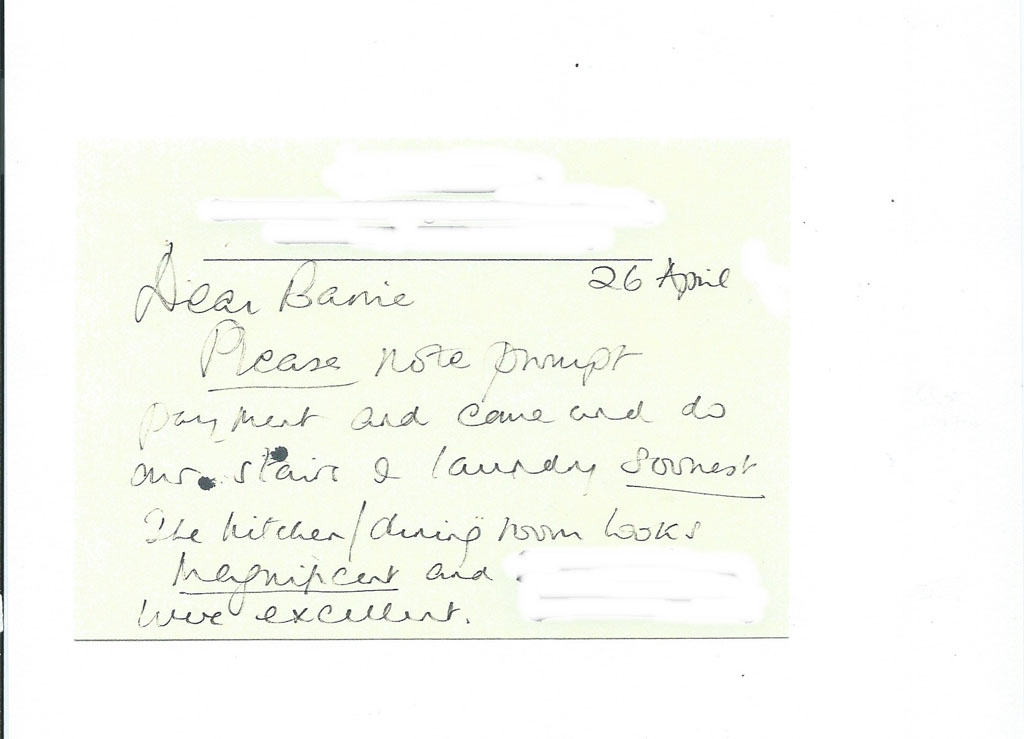 26 April
Dear Barrie
Please note prompt
payment and come and do
our stairs & laundry soonest
The kitchen/dining room looks
Magnificent and
were excellent.